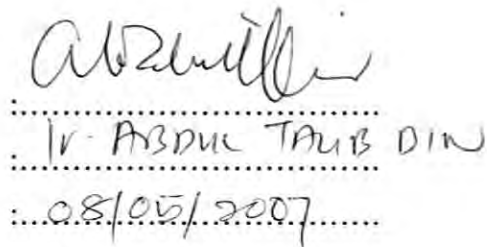 : 
: Ir. ABDUL TALIB DIN
: 08/05/2007